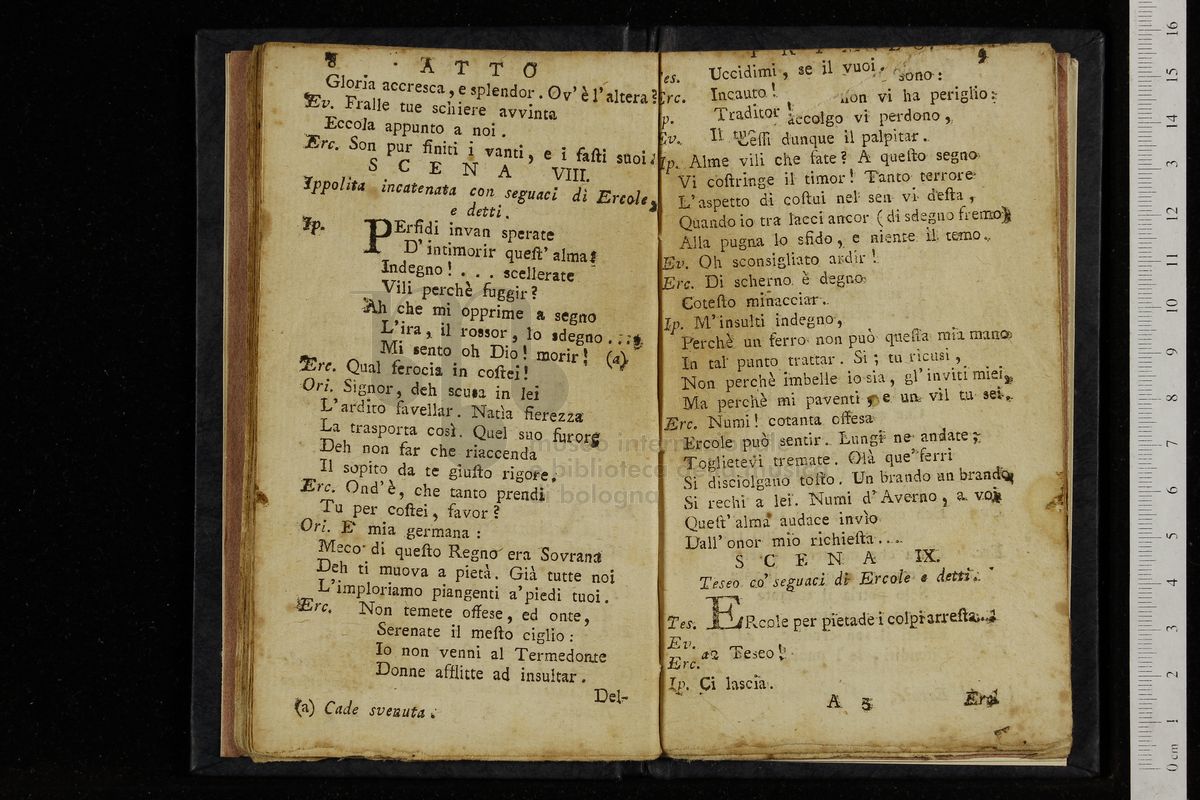 8 ATTO
Gloria accresca, e splendor. Ov' è l'altera?
Ev. Fralle tue schiere avvinta
Eccola appunto a noi.
Erc. Son pur finiti i vanti, e i faſti suoi.
SCENA VIII.
Ippolita incatenata con seguaci di Ercole,
e detti.
Ip. PErfidi invan sperate
D'intimorir queſt' alma:
Indegno! . . . scellerate
Vili perchè fuggir?
Ah che mi opprime a segno
L'ira, il rossor, lo sdegno . . . .
Mi sento oh Dio! morir! (a)
Erc. Qual ferocia in coſtei!
Ori. Signor, deh scusa in lei
L'ardito favellar. Natìa fierezza
La trasporta così. Quel suo furore
Deh non far che riaccenda
Il sopito da te giuſto rigore.
Erc. Ond'è, che tanto prendi
Tu per coſtei, favor?
Ori. E' mia germana:
Meco di queſto Regno era Sovrana
Deh ti muova a pietà. Già tutte noi
L'imploriamo piangenti a'piedi tuoi.
Erc. Non temete offese, ed onte,
Serenate il meſto ciglio:
Io non venni al Termedonte
Donne afflitte ad insultar.
Del-
(a) Cade svenuta.
9
Tes. Uccidimi, se il vuoi. sono:
Erc. Incauto! non vi ha periglio:
Ip. Traditor! accolgo vi perdono,
Ev. Il Ceſſi dunque il palpitar.
Ip. Alme vili che fate? A queſto segno
Vi coſtringe il timor! Tanto terrore
L'aspetto di coſtui nel sen vi deſta,
Quando io tra lacci ancor (di sdegno fremo)
Alla pugna lo sfido, e niente il temo.
Ev. Oh sconsigliato ardir!
Erc. Di scherno è degno
Coteſto minacciar.
Ip. M'insulti indegno,
Perchè un ferro non può queſta mia mano
In tal punto trattar. Si; tu ricusi,
Non perchè imbelle io sia, gl'inviti miei,
Ma perchè mi paventi, e un vil tu sei.
Erc. Numi! cotanta offesa
Ercole può sentir. Lungi ne andate;
Toglietevi tremate. Olà que' ferri
Si disciolgano toſto. Un brando un brando
Si rechi a lei. Numi d'Averno, a voi
Queſt' alma audace invìo
Dall' onor mio richieſta . . . .
SCENA IX.
Teseo co' seguaci di Ercole e detti.
Tes. ERcole per pietade i colpi arreſta...
Ev.
Erc. a2 Teseo!
Ip. Ci lascia.
A 3 Erc.
museo internazionale
e biblioteca della musica
di bologna
0 cm 1 2 3 4 5 6 7 8 9 10 11 12 13 14 15 16